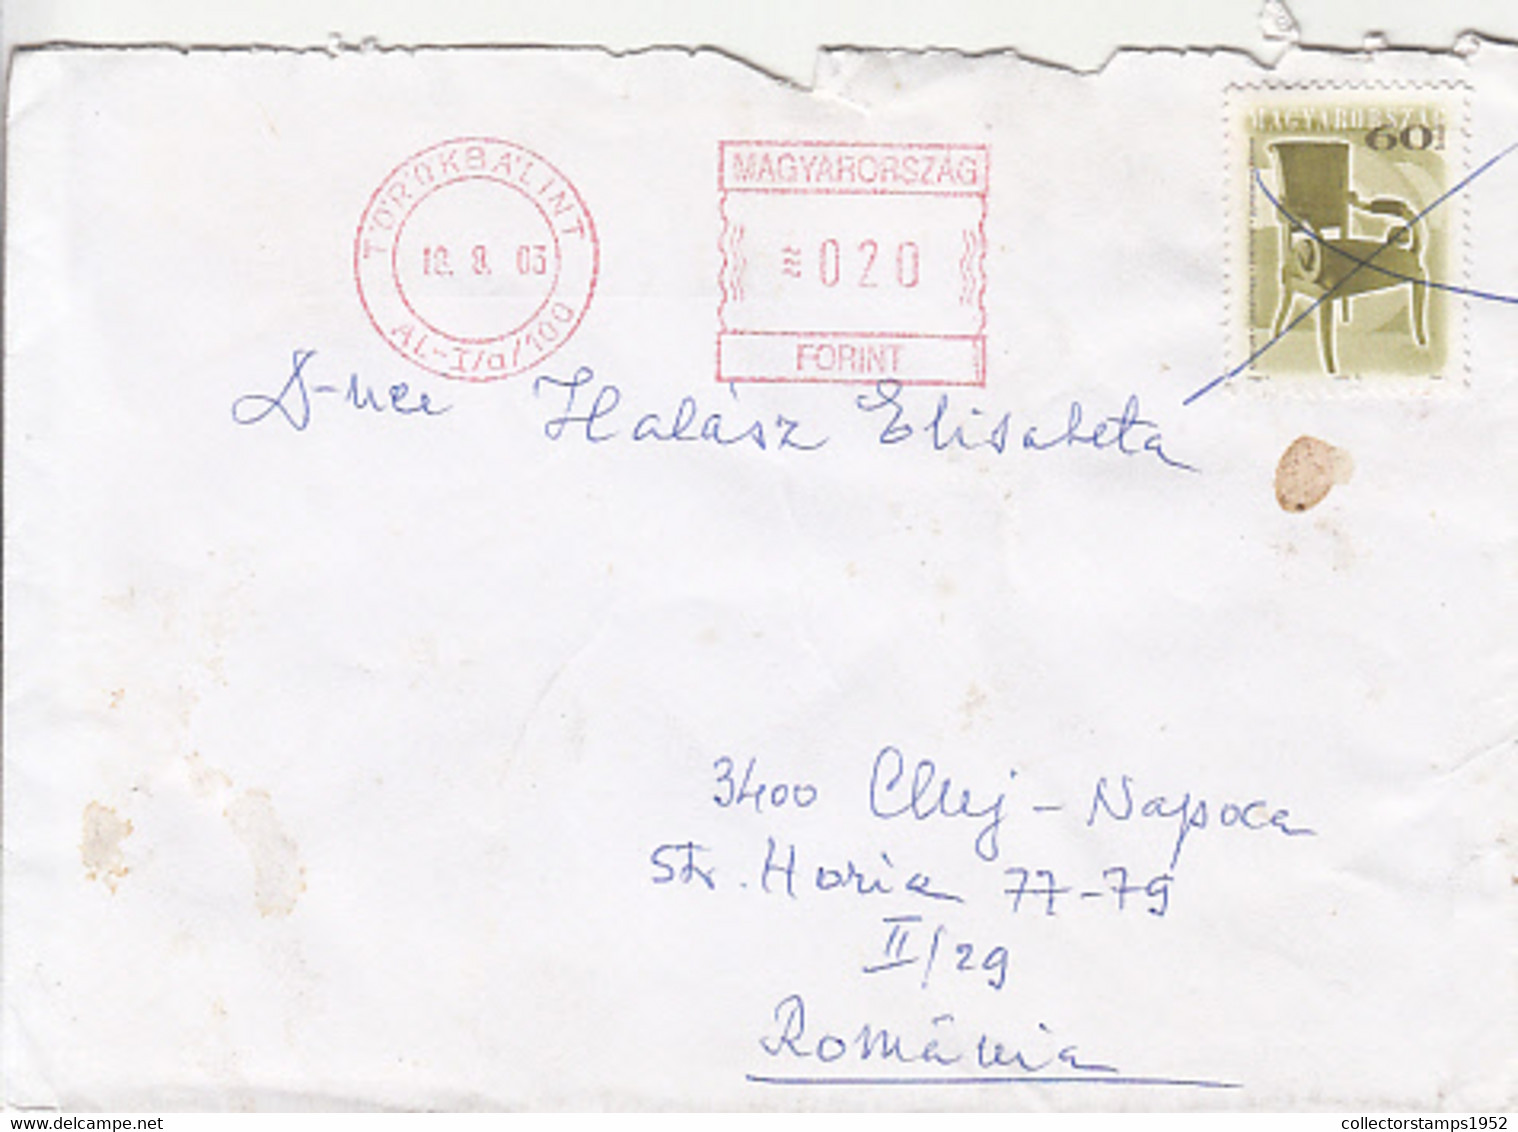 TÖRÖKBÁLINT
18. 8. 03
AL-I/a/100
MAGYARORSZÁG
≈020
FORINT
MAGYARORSZÁG
60Ft
D-nei Halász Elisabeta
3400 Cluj-Napoca
Str. Horia 77-79
II/29
România
collectorstamps1952